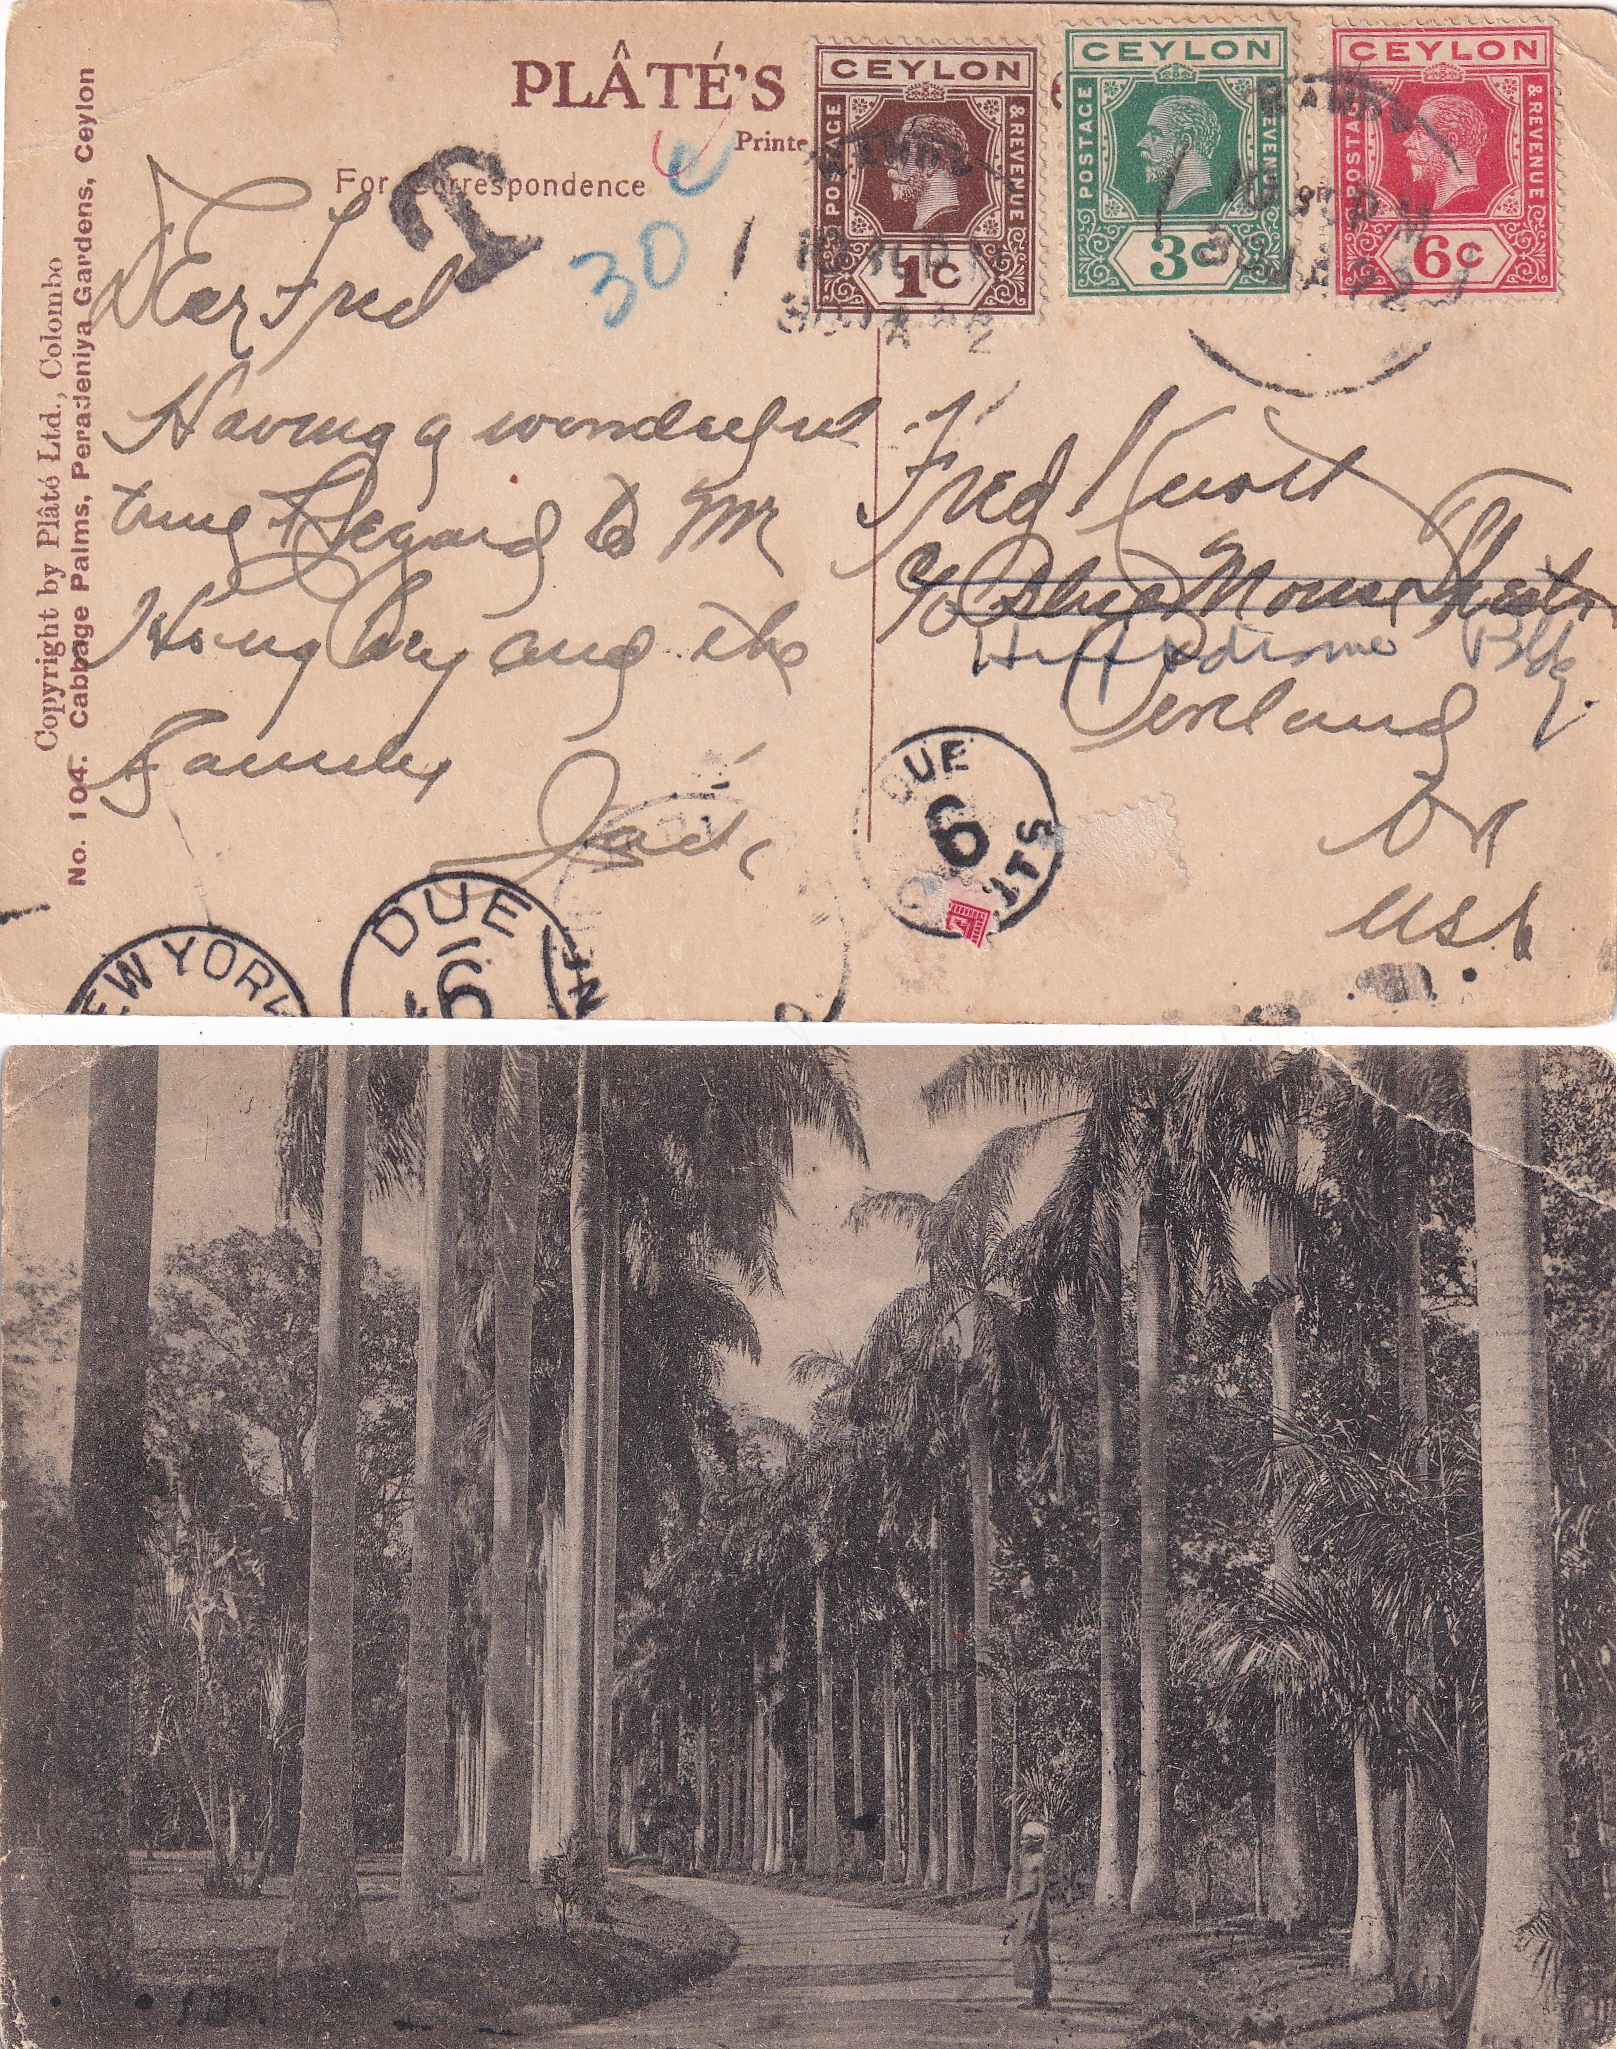 PLÂTÉ'S
Printe
For Correspondence
Copyright by Plâté Ltd., Colombo
No. 104. Cabbage Palms, Peradeniya Gardens, Ceylon
CEYLON
POSTAGE
& REVENUE
1c
CEYLON
POSTAGE
REVENUE
3c
CEYLON
POSTAGE
& REVENUE
6c
T
30 c
Dear Fred
Having a wonderful
time Regard to Mr
and the
Family
Jack
Fred
c/o Blue Mouse Theatre
Hippodrome Bldg.
Portland
Or
USA
DUE
6
CENTS
NEW YORK
DUE
6